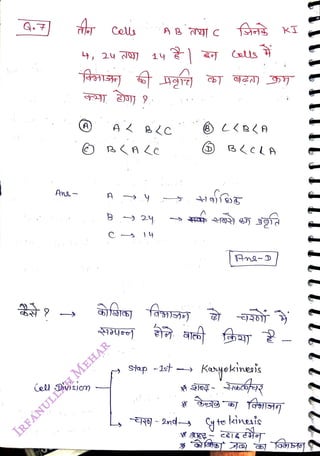 Q.7] तीन Cells A B तथा C जिनके KI
4, 24 तथा 14 है | इन Cells में
विभाजन की प्रवृत्ति का बढता क्रम
क्या होगा ?
Ⓐ A < B < C Ⓑ C < B < A
Ⓒ B < A < C Ⓓ B < C < A
Ans - A → 4 → सर्वाधिक
B → 24 → सबसे कम प्रवृति
C → 14
Ans-D
कैसे ? → कोशिका विभाजन दो चरणों में
सम्पन्न होने वाली क्रिया है -
Cell Division
stap - 1st → Karyokinesis
* शब्द -
* केन्द्रक का विभाजन
चरण - 2nd → Cytokinesis
* शब्द - व्हाइटमैन
* कोशिका द्रव्य का विभाजन
IRFANULLAH MEHAR